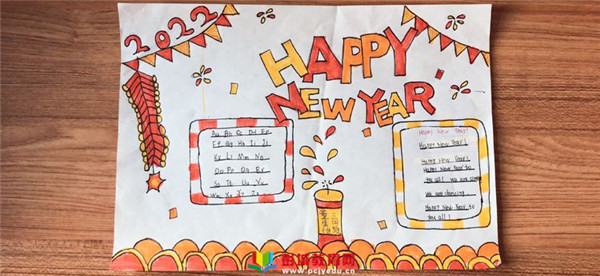 2022
HAPPY
NEW YEAR
Aa Bb Cc Dd Ee
Ff Gg Hh Ii Jj
Kk Ll Mm Nn
Oo Pp Qq Rr
Ss Tt Uu Vv
Ww Xx Yy Zz
Happy New Year!
Happy New Year!
Happy New Year!
Happy New Year to
you all! We are
we are dancing
Happy New Year to
you all!
www.pcjyedu.cn